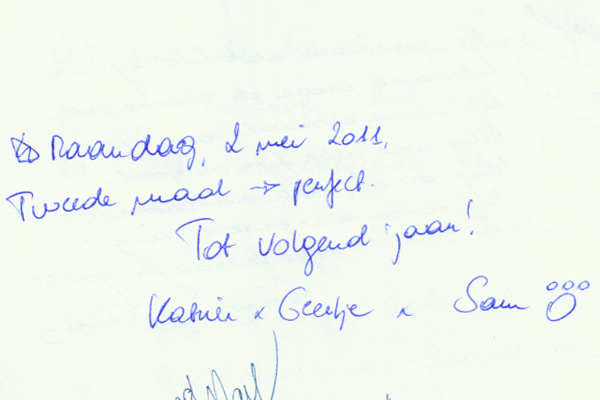 Maandag, 2 mei 2011,
Tweede maal → perfect.
Tot volgend jaar!
Katrien x Geertje x Sam